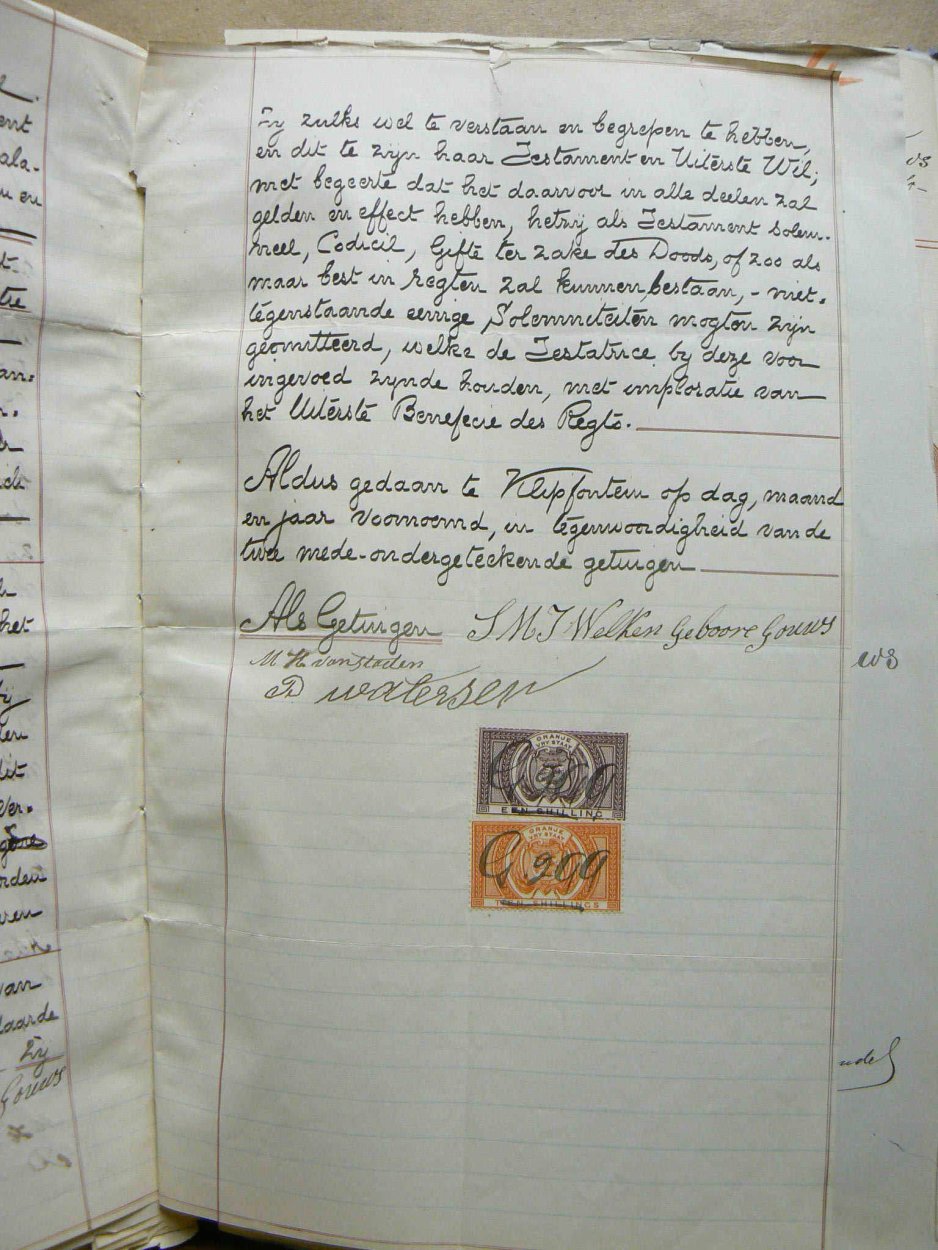 Zy zulks wel te verstaan en begrepen te hebben,
en dit te zijn haar Testament en Uiterste Wil;
met begeerte dat het daarvoor in alle deelen zal
gelden en effect hebben, hetzij als Testament solem-
neel, Codicil, Gifte ter zake des Doods, of zoo als
maar best in regten zal kunnen bestaan, - niet-
tegenstaande eenige Solemniteiten mogten zijn
geomitteerd, welke de Testatrice by deze voor
ingevoed zynde houden, met imploratie van
het Uiterste Benefecie des Regts.
Aldus gedaan te Klipfontein op dag, maand
en jaar voornoemd, in tegenwoordigheid van de
twee mede-ondergeteekende getuigen
Als Getuigen S M J Welken Geboore Gouws
M H van Staden
D watersen
ORANJE
VRY STAAT
EEN SHILLING
ORANJE
VRY STAAT
G 299
TIEN SHILLINGS
ent
ala-
en
het
dit
ver-
orden
van
laarde
Zy
Gouws
ws